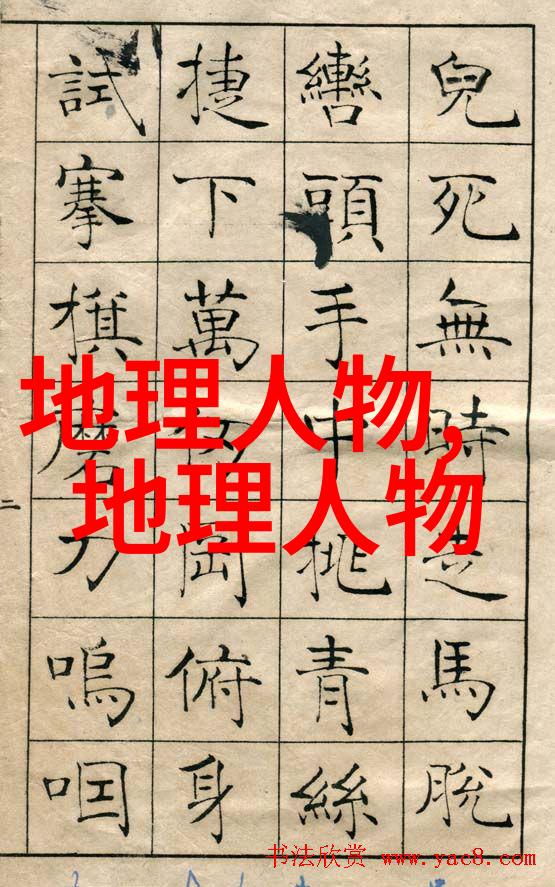 兒死無時走馬脫
轡頭手中挑青絲
捷下萬仞岡俯身
試搴旗磨刀嗚咽
二
地理人物,
地理人物
书法欣赏 www.yac8.com